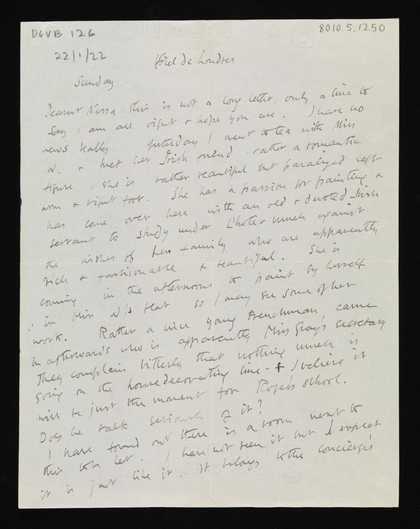 DGVB 126
8010.5.1250
22/1/22
Hotel de Londres
Sunday
Dearest Nessa this is not a long letter, only a line to
say I am all right & hope you are. I have no
news really. Yesterday I went to tea with Miss
N. & met her Irish friend, rather a romantic
figure. She is rather beautiful but paralyzed left
arm & right foot. She has a passion for painting &
has come over here with an old & devoted Irish
servant to study under Lhote much against
the wishes of her family who are apparently
rich & fashionable & beautiful. She is
coming in the afternoons to paint by herself
in Miss N's flat so I may see some of her
work. Rather a nice young Frenchman came
in afterwards who is apparently Miss Gray's secretary
They complain bitterly that nothing much is
going on the house decorating line - & I believe it
will be just the moment for Roger's school.
Does he talk seriously of it?
I have found out there is a room next to
this to let. I have not seen it but I expect
it is just like it. It belongs to the concierge's